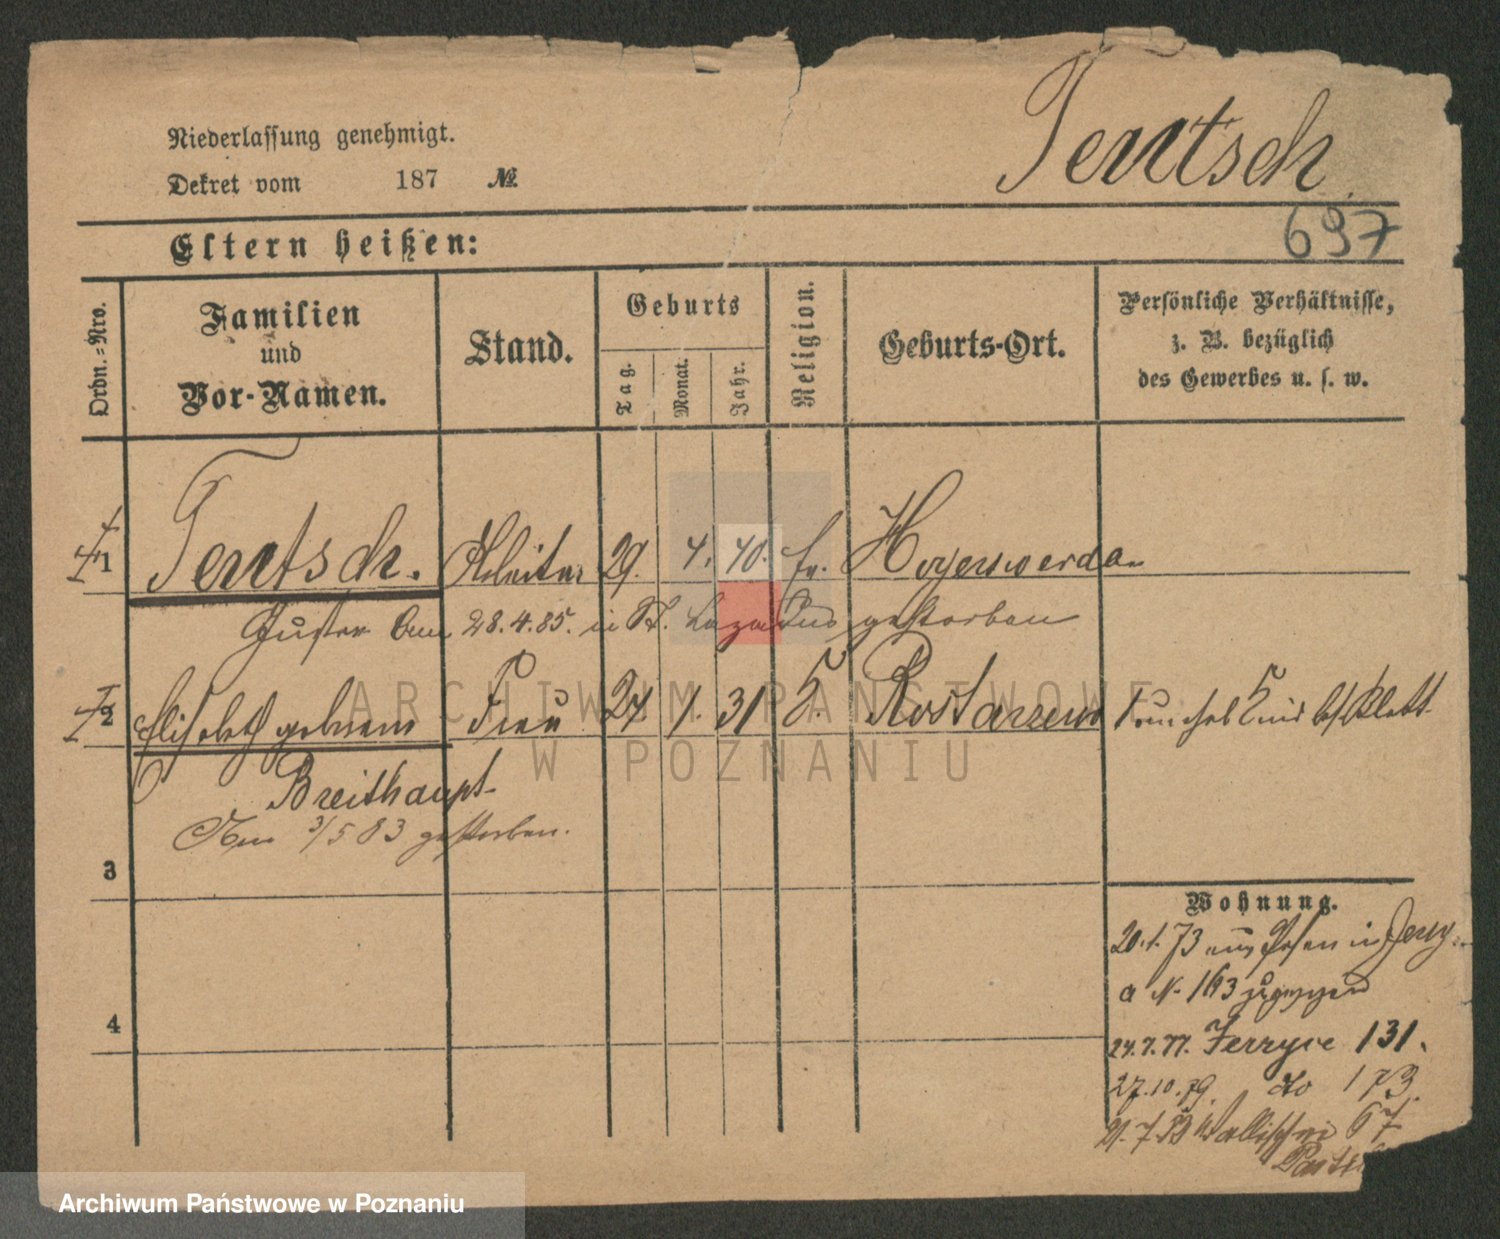 Niederlassung genehmigt.
Dekret vom 187 №
Teutsch
697
Eltern heißen:
Ordn.=Nro.
Familien
und
Vor-Namen.
Stand.
Geburts
Tag.
Monat.
Jahr.
Religion.
Geburts-Ort.
Persönliche Verhältnisse,
z. B. bezüglich
des Gewerbes u. s. w.
1 Teutsch. Arbeiter 29. 4. 40. Hoyerswerda
Gustav Am 28.4.85. in St. Lazarus gestorben
2 Elisabeth geborene Frau 27. 1. 31
Breithaupt
Am 3/5 83 gestorben.
3
4
Wohnung.
20.1.73 aus Posen in
a N. 163 zugezogen
24.7.77. Jerzyce 131.
27.10.79. do 173.
Wallischei 67
ARCHIWUM PAŃSTWOWE
W POZNANIU
Archiwum Państwowe w Poznaniu